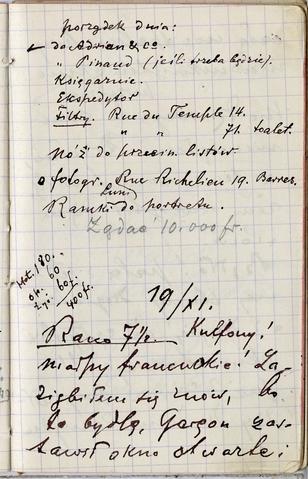 porządek dnia:
do Adrian & co.
" Pinaud (jeśli trzeba będzie).
Księgarnie.
Ekspedytor
Filtry. Rue du Temple 14.
" " 71. toalet.
Nóż do przecin. listów
fotogr. Rue Richelieu 19.
Ramki do portretu.
Żądać 10.000 fr.
Hot. 180.
60
60 fr.
400 fr.
19/XI.
Rano 7½. Kulfony!
małpy francuskie! Za-
ziębiłem się znów, bo
to bydlę, Garçon zos-
tawił okno otwarte i